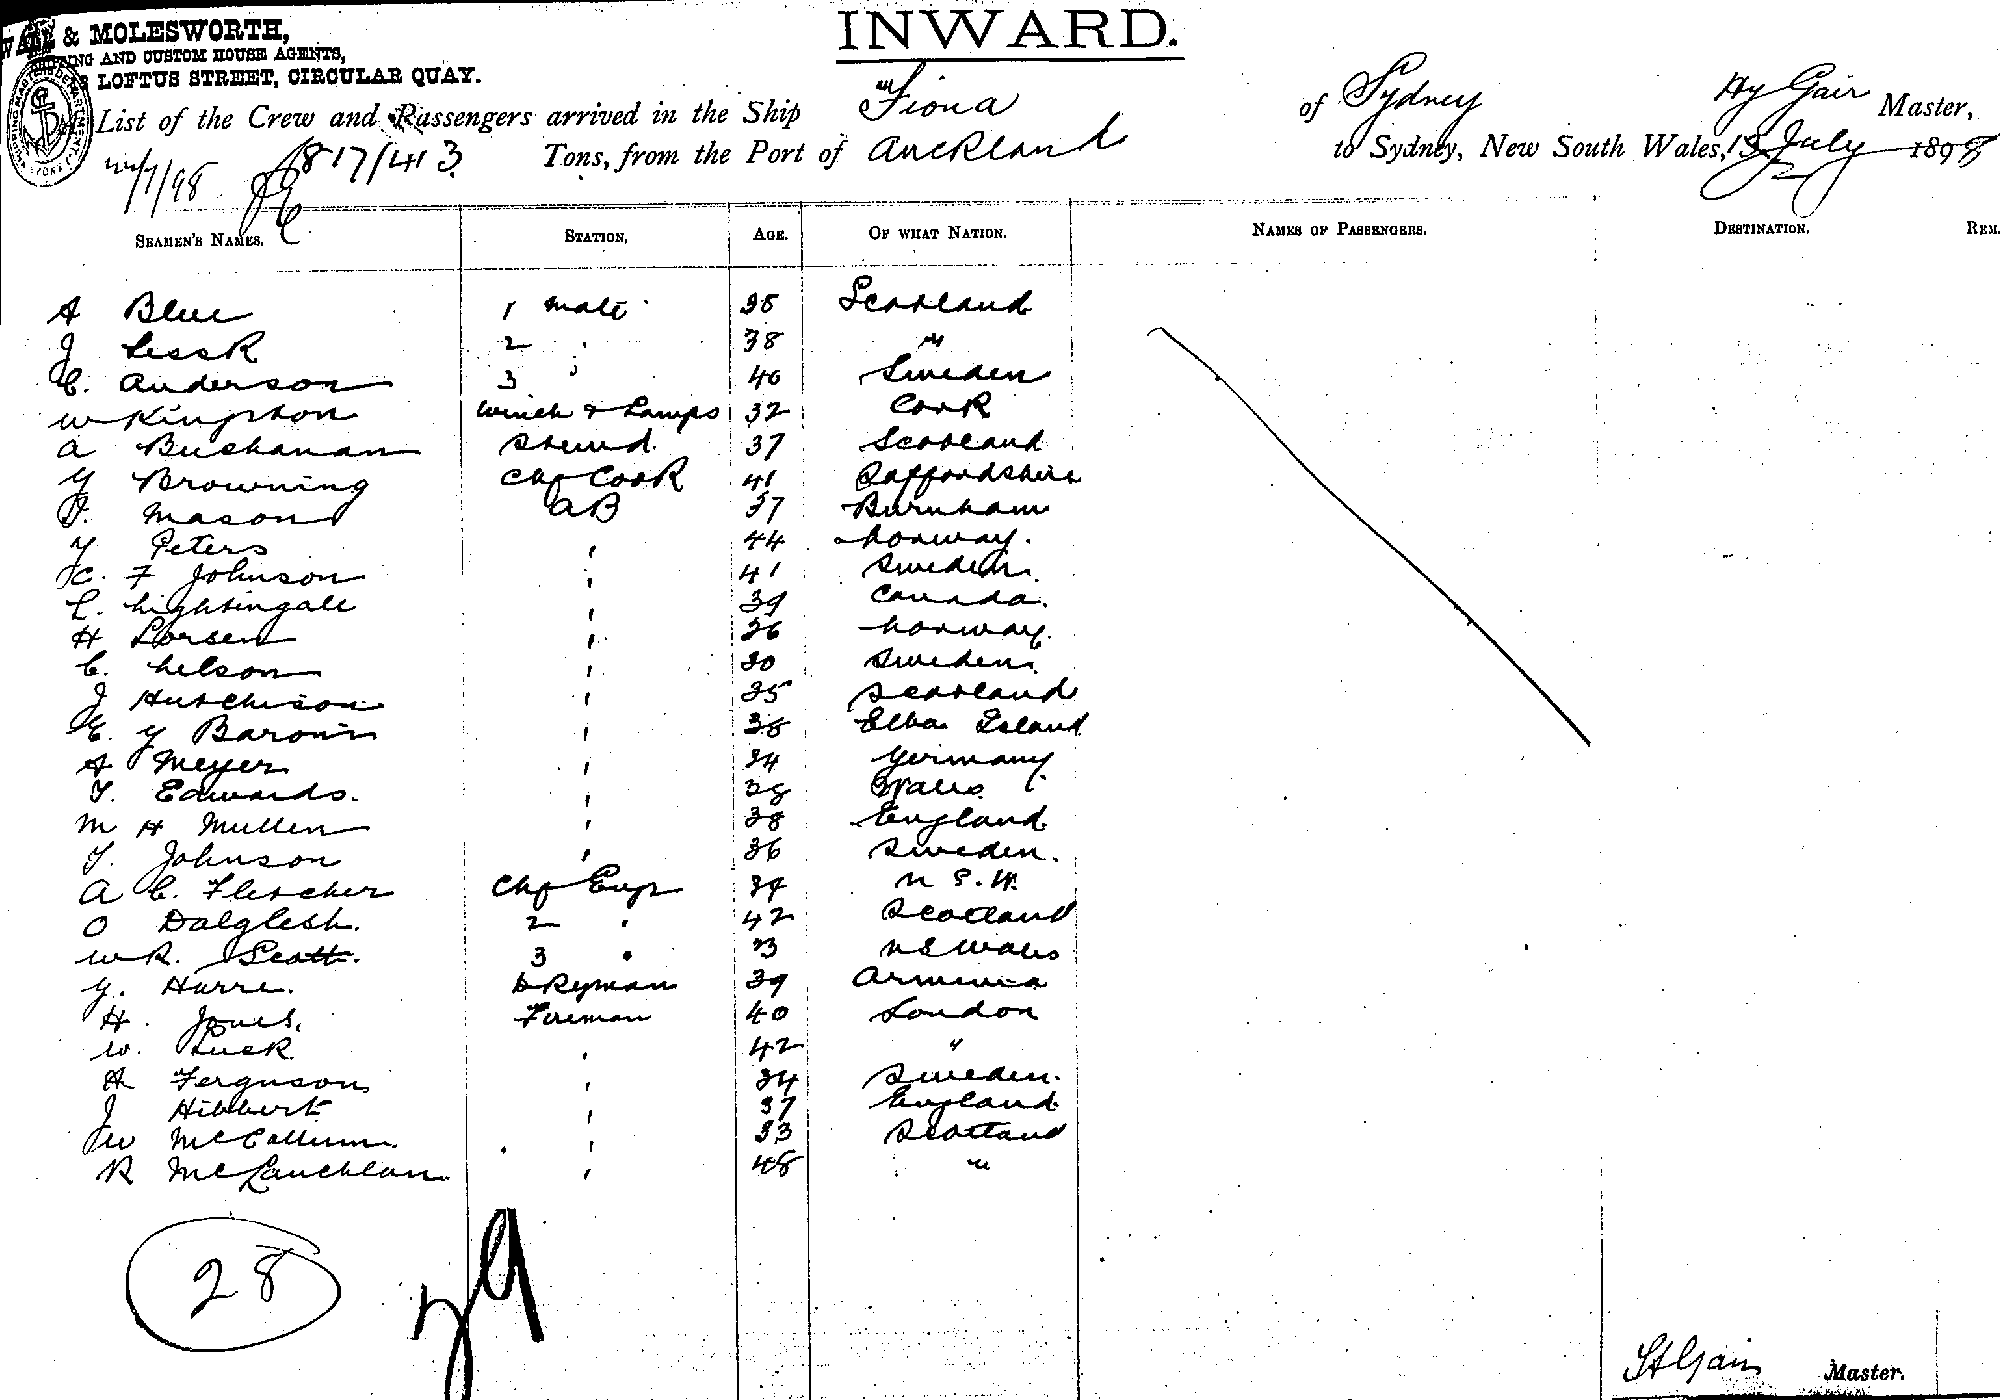 INWARD.
& MOLESWORTH,
AND CUSTOM HOUSE AGENTS,
LOFTUS STREET, CIRCULAR QUAY.
List of the Crew and Passengers arrived in the Ship Fiona of Sydney Hy Gair Master,
817/413 Tons, from the Port of Auckland to Sydney, New South Wales, 13 July 1898
SEAMEN'S NAMES. STATION. AGE. OF WHAT NATION. NAMES OF PASSENGERS. DESTINATION. REM.
A Blue 1 Mate Scotland
J 2 ' 38 "
C. Anderson 3 ' 40 Sweden
W Kingston Winch & Lamps 32 Cork
A Buchanan Stewd. 37 Scotland
G Browning Chf Cook 41 Staffordshire
Mason AB 37 Burnham
Peters ' 44 Norway.
C. F Johnson ' 41 Sweden.
L. Nightingale ' 39 Canada.
H Lorsen ' Norway.
C. Nelson ' 30 Sweden.
J Hutchison ' 35 Scotland
E. G Baroni ' 38 Elba Island
A Meyer ' 34 Germany
T. Edwards. ' 38 Wales
M H Mullen ' 38 England
T. Johnson ' 36 Sweden.
A C. Fletcher Chf Engr 34 N S. W.
O Dalglesh. 2 ' 42 Scotland
W R. Scott. 3 " 23 N S Wales
G. Harre. Dkyman 39 Armenia
H. Jones. Fireman 40 London
W. Luck ' 42 "
A Ferguson ' 34 Sweden.
J Hibbert ' 37 England
W McCallum ' 33 Scotland
R McLauchlan ' 48 "
28
Gair Master.